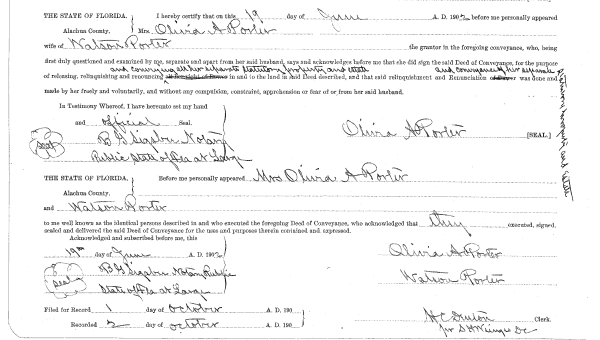 THE STATE OF FLORIDA. I hereby certify that on this 19 day of June A. D. 1902 before me personally appeared
Alachua County. Mrs. Olivia A Porter
wife of Watson Porter the grantor in the foregoing conveyance, who, being
first duly questioned and examined by me, separate and apart from her said husband, says and acknowledges before me that she did sign the said Deed, for the purpose
and conveying all her separate statutory property and estate and conveyance of her separate
of releasing, relinquishing and renouncing all her right of Dower in and to the land in said Deed described, and that said relinquishment and Renunciation of Dower was done and
statutory property and estate
made by her freely and voluntarily, and without any compulsion, constraint, apprehension or fear of or from her said husband.
In Testimony Whereof, I have hereunto set my hand
and official Seal.
Olivia A Porter [SEAL.]
Seal
Notary
Public State of Fla at Large
THE STATE OF FLORIDA. Before me personally appeared Mrs Olivia A Porter
Alachua County.
and Watson Porter
to me well known as the identical persons described in and who executed the foregoing Deed of Conveyance, who acknowledged that they executed, signed,
sealed and delivered the said Deed of Conveyance for the uses and purposes therein contained and expressed.
Acknowledged and subscribed before me, this
19th day of June A. D. 1902
Olivia A Porter
Seal
Notary Public
Watson Porter
State of Fla at Large
Filed for Record 1 day of October A. D. 190
Clerk.
Recorded 2 day of October A. D. 190